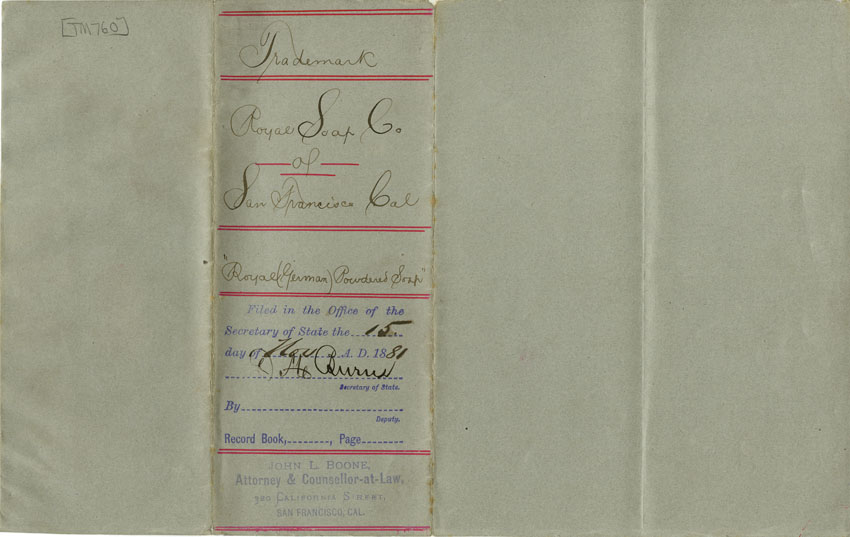 [TM760]
Trademark
Royal Soap Co
of
San Francisco Cal
"Royal (German) Powdered Soap"
Filed in the Office of the
Secretary of State the 15
day of Nov A. D. 1881
Burns
Secretary of State.
By
Deputy.
Record Book, , Page
JOHN L BOONE,
Attorney & Counsellor-at-Law,
320 CALIFORNIA STREET,
SAN FRANCISCO, CAL.